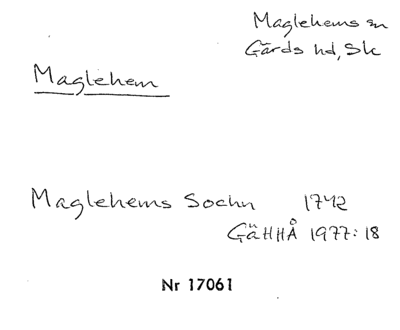 Maglehems sn
Gärds hd, Sk
Maglehem
Maglehems Sochn 1742
GäHHÅ 1977:18
Nr 17061